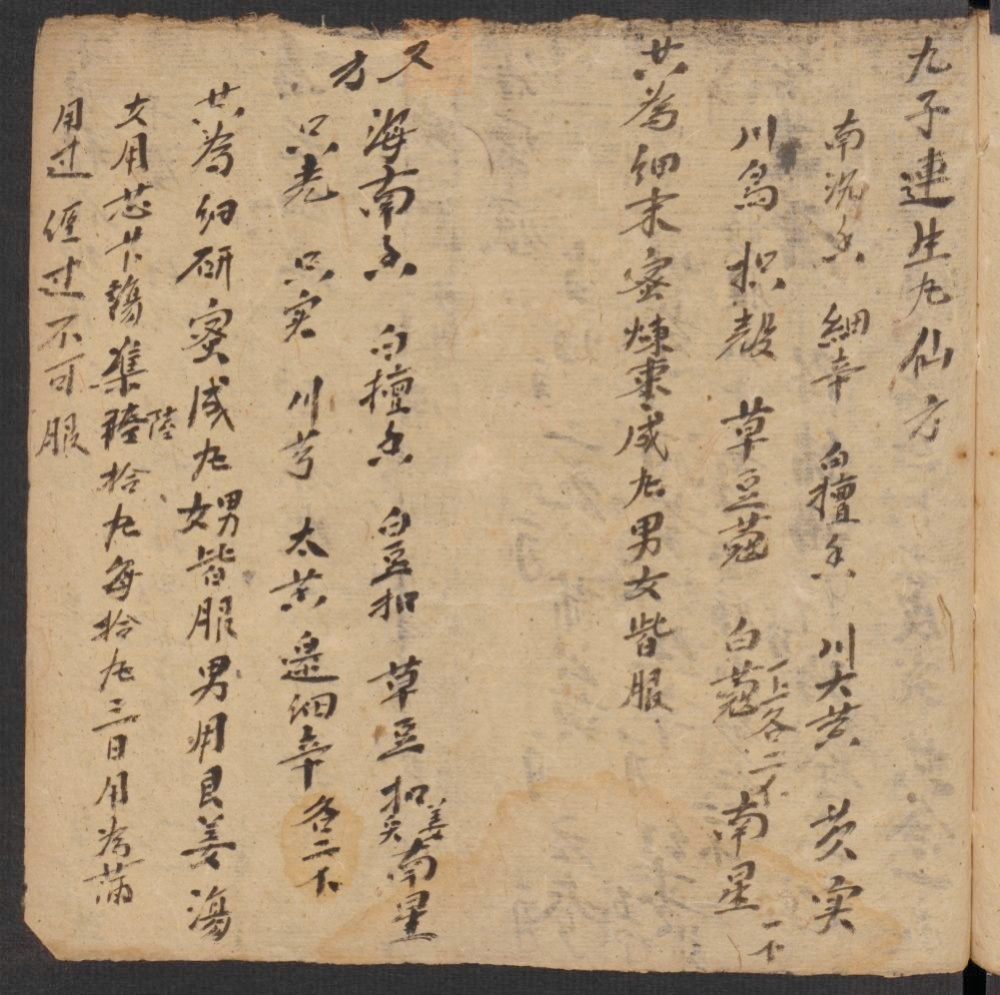 九子連生丸仙方
南沉香 細辛 白檀香 川大黄 黄实
川烏 枳殼 草豆蔻 白蔻 南星
共為細末蜜煉棗成丸男女皆服
又方
海南香 白檀香 白豆扣 草豆扣 姜南星
只壳 只实 川芎 太黄 邊細辛 各二
共為细研蜜成丸男女皆服男用良姜湯
女用 湯集陸拾丸每拾丸三日用為滿
用过 经过不可服